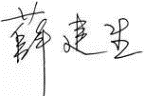 薛建生